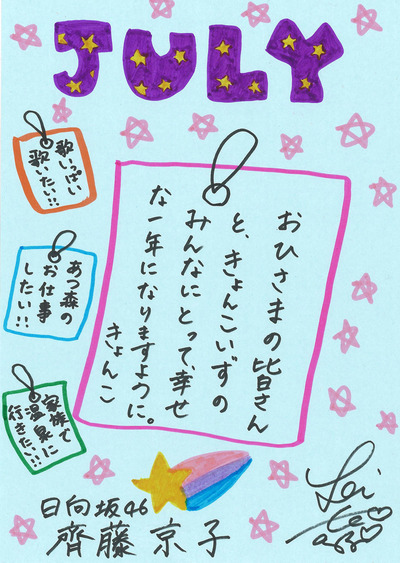 JULY
歌いっぱい
歌いたい!!
おひさまの皆さん
と、きょんこいずの
みんなにとって、幸せ
な一年になりますように。
きょんこ
あつ森の
お仕事
したい!!
家族で
温泉に
行きたい!!
日向坂46
齊藤京子